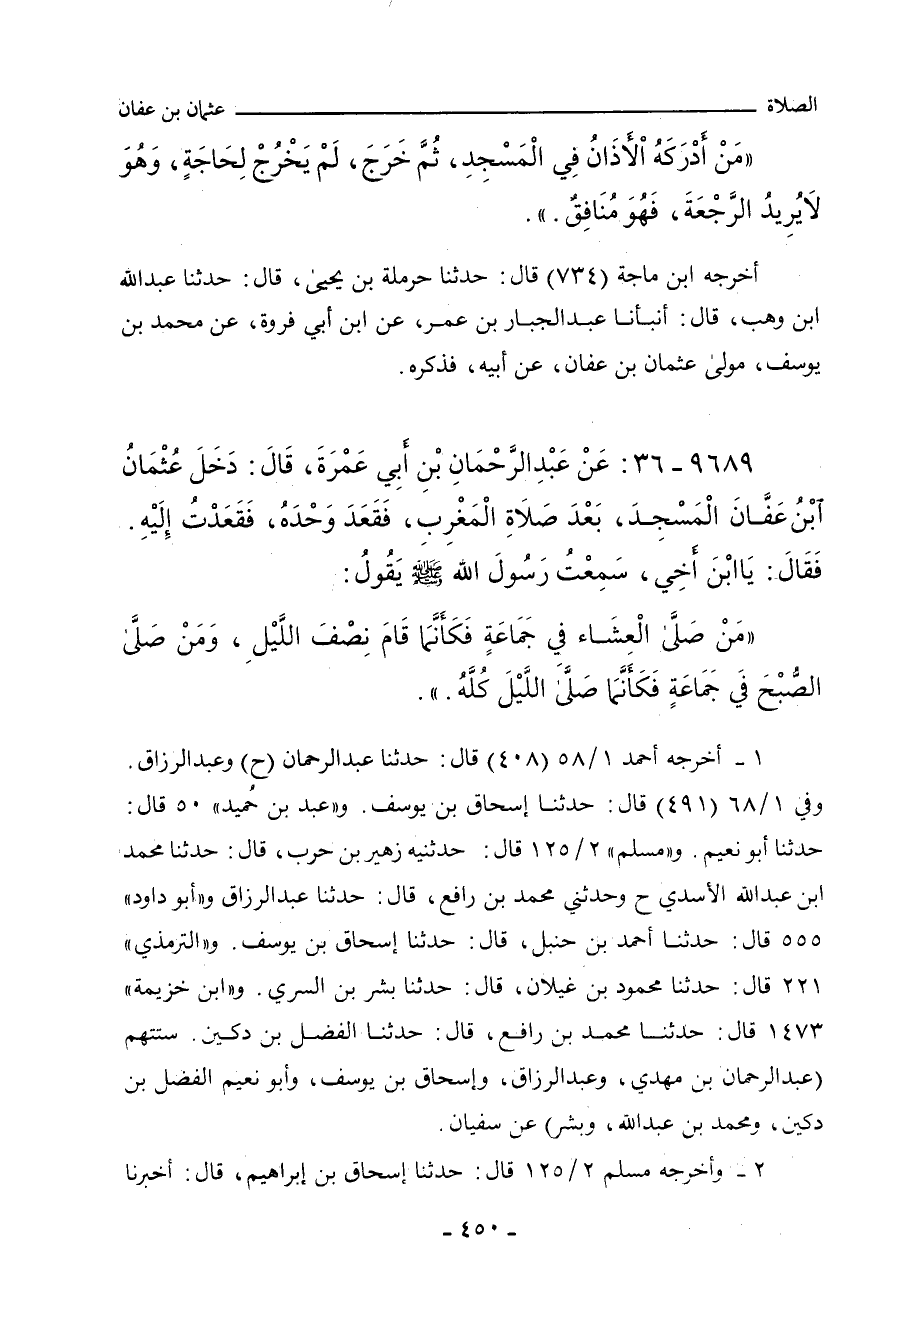 الصلاة ــــــــــــــــــــ عثمان بن عفان
«مَنْ أَدْرَكَهُ الْأَذَانُ فِي الْمَسْجِدِ، ثُمَّ خَرَجَ، لَمْ يَخْرُجْ لِحَاجَةٍ، وَهُوَ
لَايُرِيدُ الرَّجْعَةَ، فَهُوَ مُنَافِقٌ.».
أخرجه ابن ماجة (٧٣٤) قال: حدثنا حرملة بن يحيىٰ، قال: حدثنا عبدالله
ابن وهب، قال: أنبأنا عبدالجبار بن عمر، عن ابن أبي فروة، عن محمد بن
يوسف، مولىٰ عثمان بن عفان، عن أبيه، فذكره.
٩٦٨٩ ـ ٣٦: عَنْ عَبْدِالرَّحْمَانِ بْنِ أَبِي عَمْرَةَ، قَالَ: دَخَلَ عُثْمَانُ
ٱبْنُ عَفَّانَ الْمَسْجِدَ، بَعْدَ صَلَاةِ الْمَغْرِبِ، فَقَعَدَ وَحْدَهُ، فَقَعَدْتُ إِلَيْهِ.
فَقَالَ: يَاابْنَ أَخِي، سَمِعْتُ رَسُولَ الله ﷺ يَقُولُ:
«مَنْ صَلَّىٰ الْعِشَاء فِي جَمَاعَةٍ فَكَأَنَّمَا قَامَ نِصْفَ اللَّيْلِ، وَمَنْ صَلَّىٰ
الصُّبْحَ فِي جَمَاعَةٍ فَكَأَنَّمَا صَلَّىٰ اللَّيْلَ كُلَّهُ.».
١ ـ أخرجه أحمد ٥٨/١ (٤٠٨) قال: حدثنا عبدالرحمان (ح) وعبدالرزاق.
وفي ٦٨/١ (٤٩١) قال: حدثنا إسحاق بن يوسف. و«عبد بن حُميد» ٥٠ قال:
حدثنا أبو نعيم. و«مسلم» ١٢٥/٢ قال: حدثنيه زهير بن حرب، قال: حدثنا محمد
ابن عبدالله الأسدي ح وحدثني محمد بن رافع، قال: حدثنا عبدالرزاق و«أبو داود»
٥٥٥ قال: حدثنا أحمد بن حنبل، قال: حدثنا إسحاق بن يوسف. و«الترمذي»
٢٢١ قال: حدثنا محمود بن غيلان، قال: حدثنا بشر بن السري. و«ابن خزيمة»
١٤٧٣ قال: حدثنا محمد بن رافع، قال: حدثنا الفضل بن دكين. ستتهم
(عبدالرحمان بن مهدي، وعبدالرزاق، وإسحاق بن يوسف، وأبو نعيم الفضل بن
دكين، ومحمد بن عبدالله، وبشر) عن سفيان.
٢ ـ وأخرجه مسلم ١٢٥/٢ قال: حدثنا إسحاق بن إبراهيم، قال: أخبرنا
ـ ٤٥٠ ـ